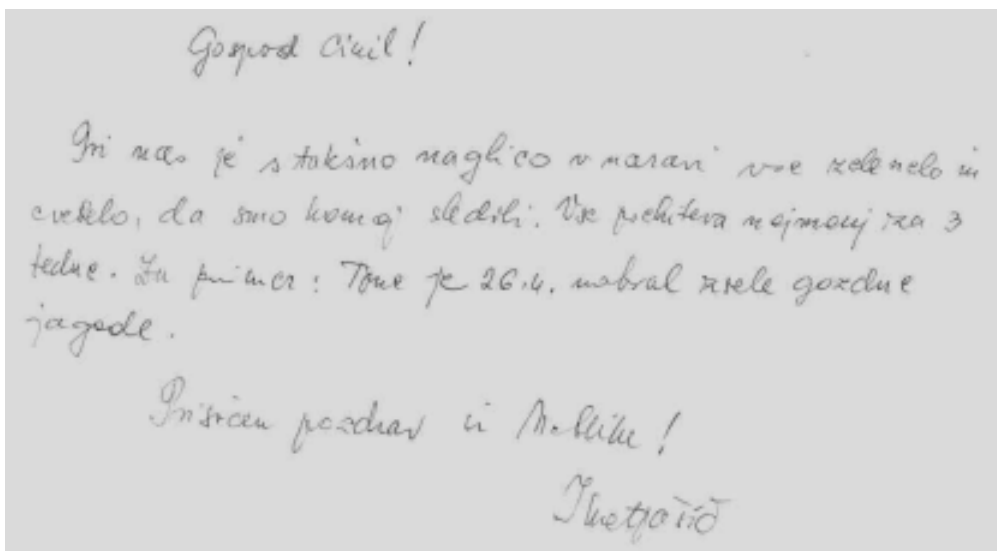 Gospod Ciril!
Pri nas je s takšno naglico v naravi vse zelenelo in
cvetelo, da smo komaj sledili. Vse prehiteva najmanj za 3
tedne. Za primer: Tone je 26.4. nabral zrele gozdne
jagode.
Prisrčen pozdrav iz Metlike!